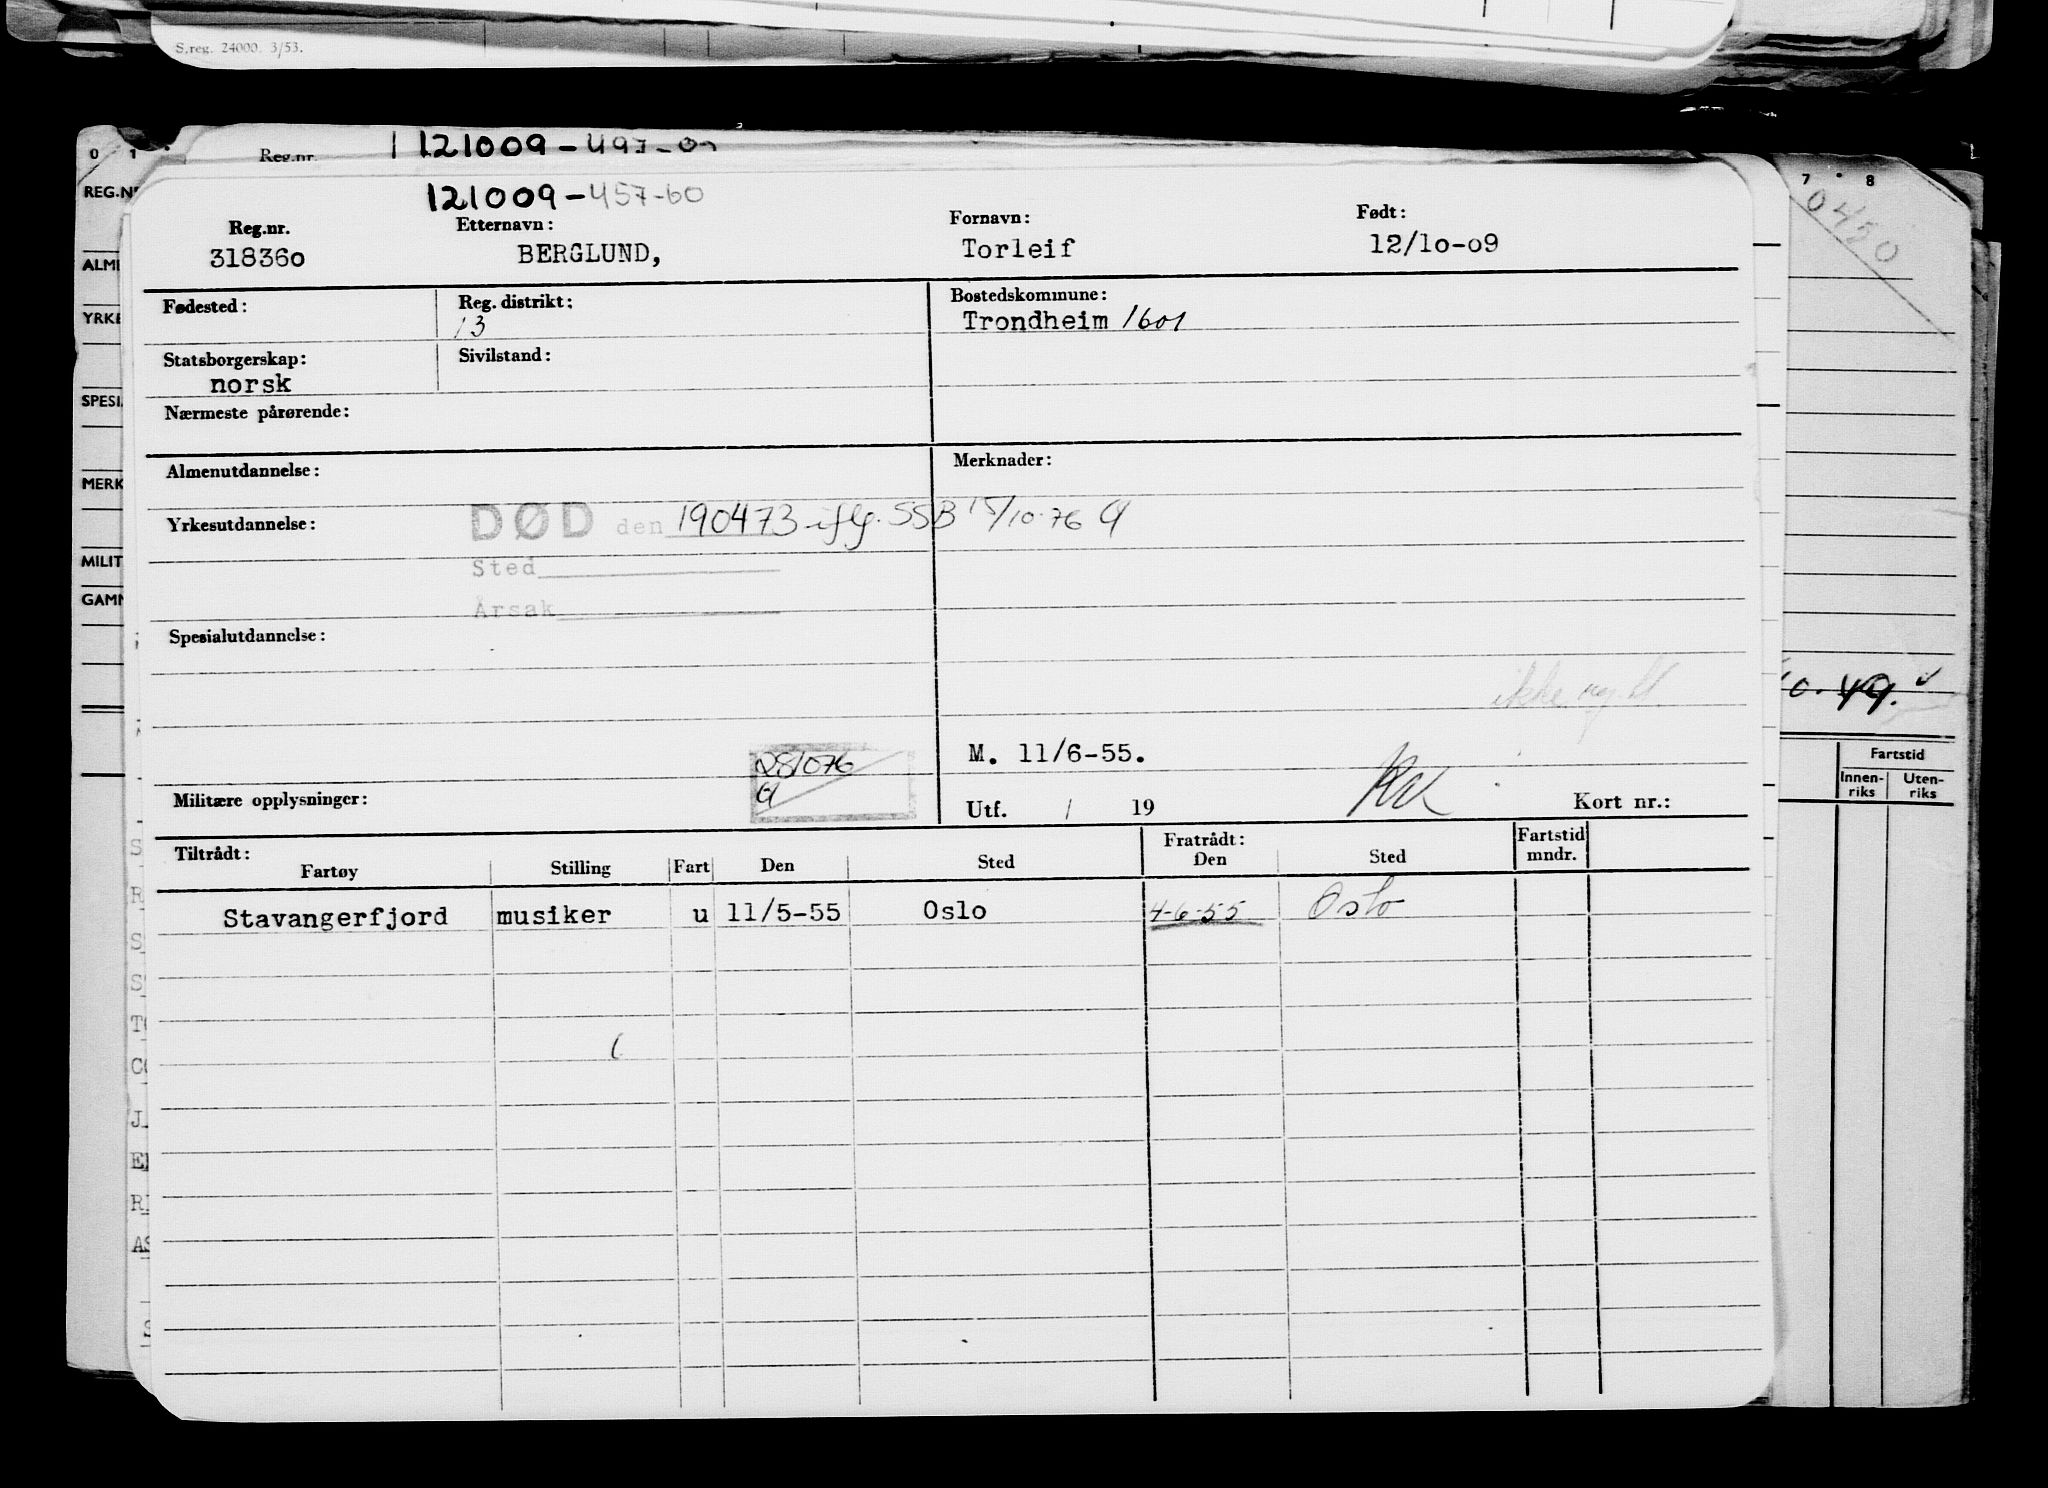 S.reg. 24000. 3/53.
0 1
Reg.nr. 121009-497-
REG.N
7 8
0420
121009-457-60
Reg.nr. Etternavn: Fornavn: Født:
318360 BERGLUND, Torleif 12/10-09
ALME
Fødested: Reg. distrikt: Bostedskommune:
YRKE
13 Trondheim 1601
Statsborgerskap: Sivilstand:
norsk
SPESI
Nærmeste pårørende:
Almenutdannelse: Merknader:
MERK
Yrkesutdannelse: DØD den 190473 iflg. SSB 15/10-76 G
MILIT
Sted
GAMM
Årsak
Spesialutdannelse:
ikke
10.49.
M. 11/6-55.
281076
G
Militære opplysninger: Utf. / 19 Kort nr.:
Fartstid
Innen-riks Uten-riks
Tiltrådt: Fratrådt: Fartstid
Fartøy Stilling Fart Den Sted Den Sted mndr.
Stavangerfjord musiker u 11/5-55 Oslo 4-6-55 Oslo